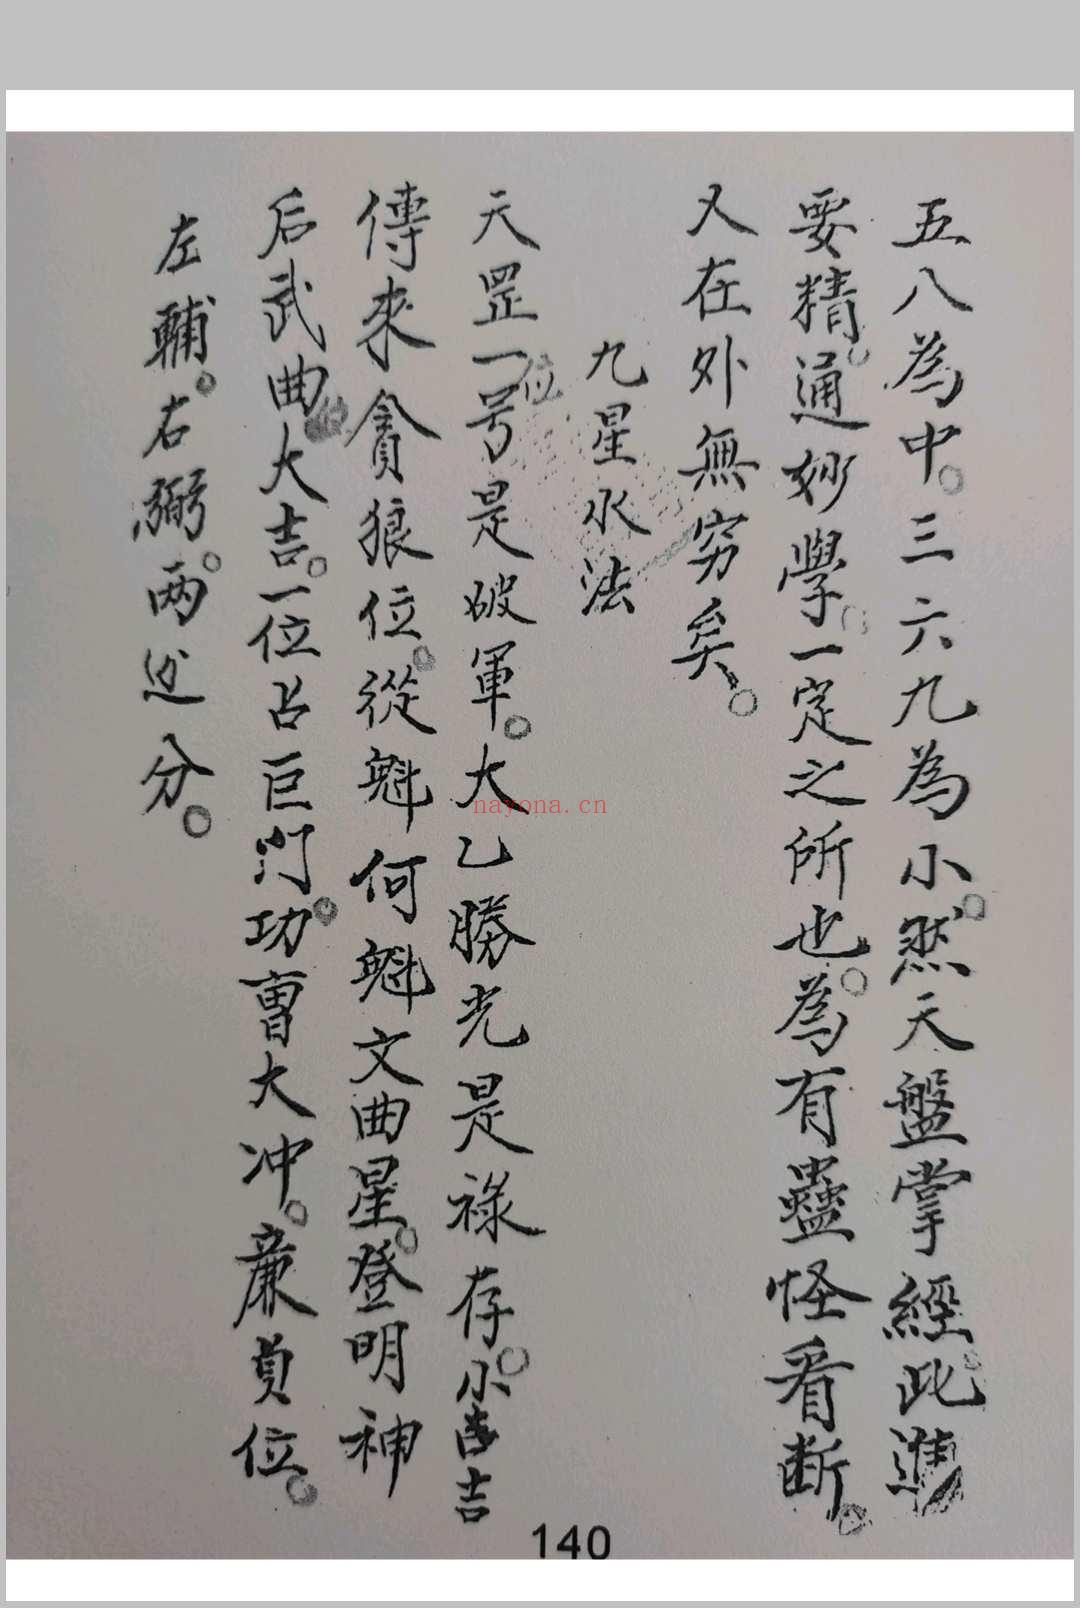 五八為中。三六九為小。然天盤掌經。此進
要精。通妙學。一定之所也。為有蠱怪看断。
又在外無穷矣。
九星水法
天罡一位号是破軍。大乙勝光是祿存。小吉
傳來貪狼位。從魁何魁文曲星。登明神
后武曲大吉。一位占巨门。功曹大冲。亷貞位。
左輔。右弼。两边分。
nayona.cn
140